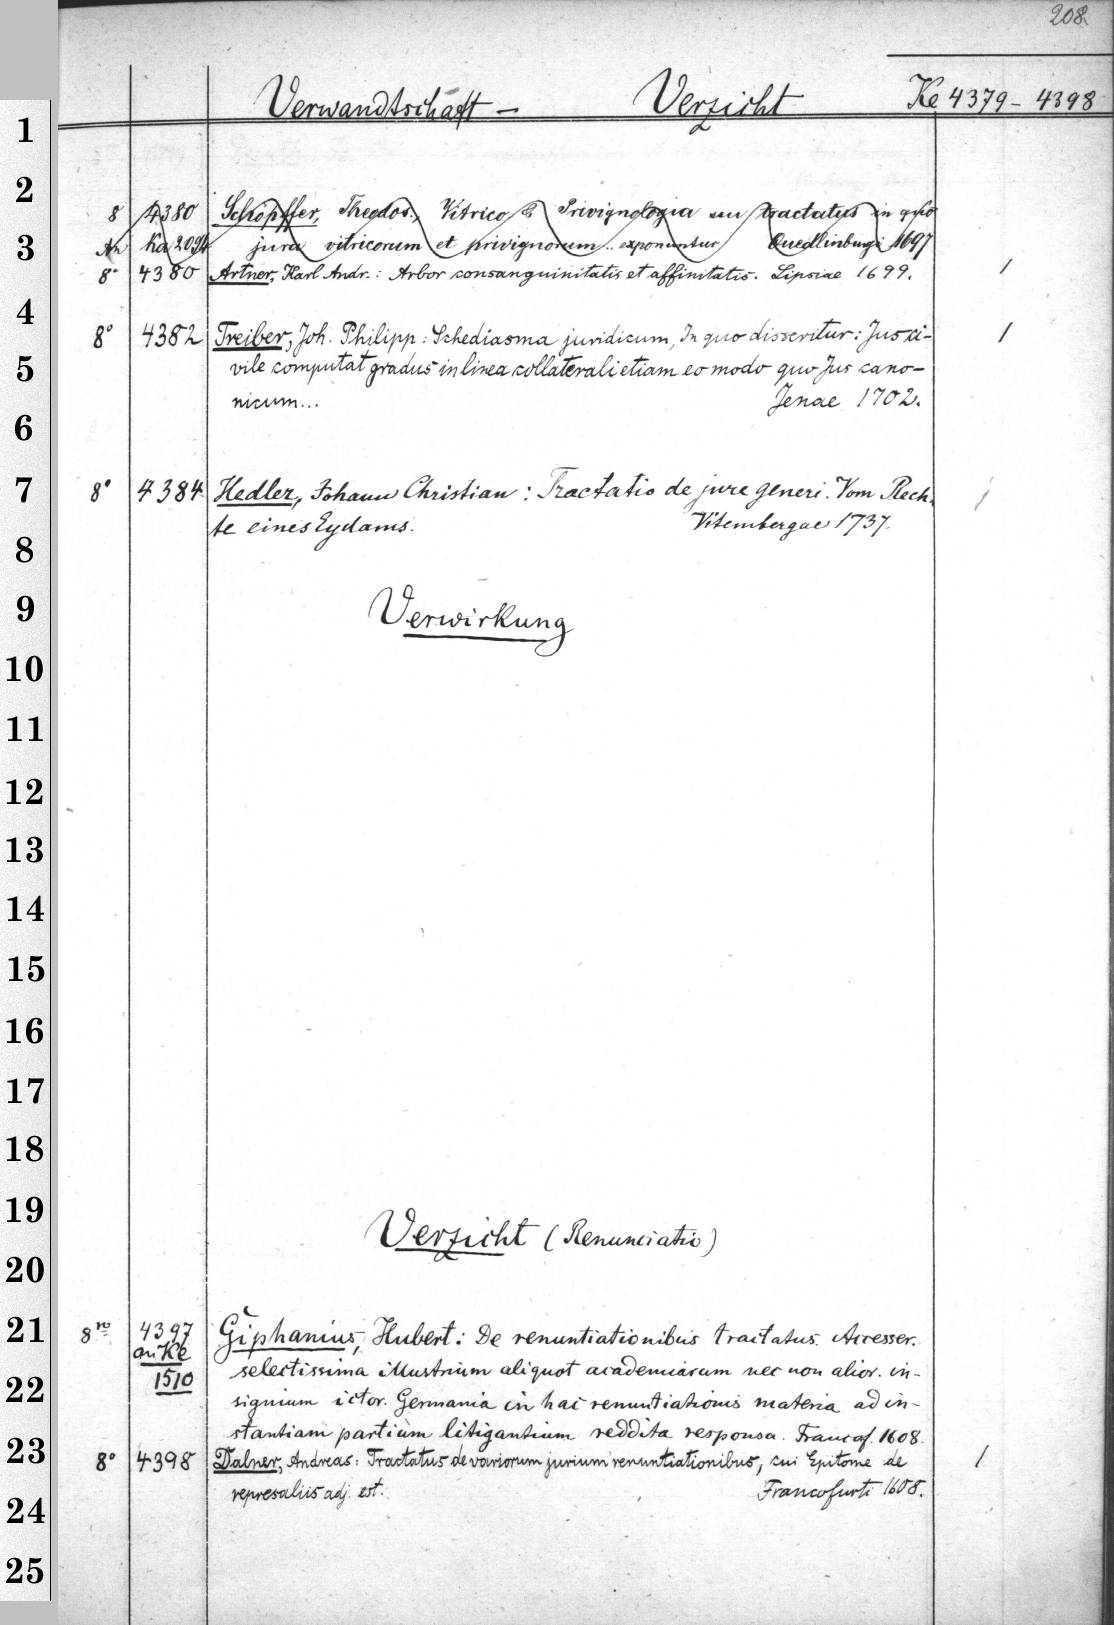 208.
Verwandtschaft – Verzicht Ke 4379 – 4398
8 4380 Schöpffer, Theodos. Vitrico & Privignologia seu tractatus in quo
An Ka 2094 jura vitricorum et privignorum .. exponuntur Quedlinburgi 1697
8° 4380 Artner, Karl Andr.: Arbor consanguinitatis et affinitatis. Lipsiae 1699. 1
8° 4382 Treiber, Joh. Philipp: Schediasma juridicum, In quo disseritur: Jus ci- 1
vile computat gradus in linea collaterali etiam eo modo quo Jus cano-
nicum... Jenae 1702.
8° 4384 Hedler, Johann Christian: Tractatio de jure generi. Vom Rech- 1
te eines Eydams. Vitembergae 1737.
Verwirkung
Verzicht (Renunciatio)
8vo 4397 Giphanius, Hubert: De renuntiationibus tractatus. Accesser.
an Ke selectissima illustrium aliquot academiarum nec non alior. in-
1510 signium ictor. Germania in hac renuntiationis materia ad in-
stantiam partium litigantium reddita responsa. Francof. 1608.
8° 4398 Dalner, Andreas: Tractatus de variorum jurium renuntiationibus, cui Epitome de 1
represaliis adj. est. Francofurti 1608.
1
2
3
4
5
6
7
8
9
10
11
12
13
14
15
16
17
18
19
20
21
22
23
24
25